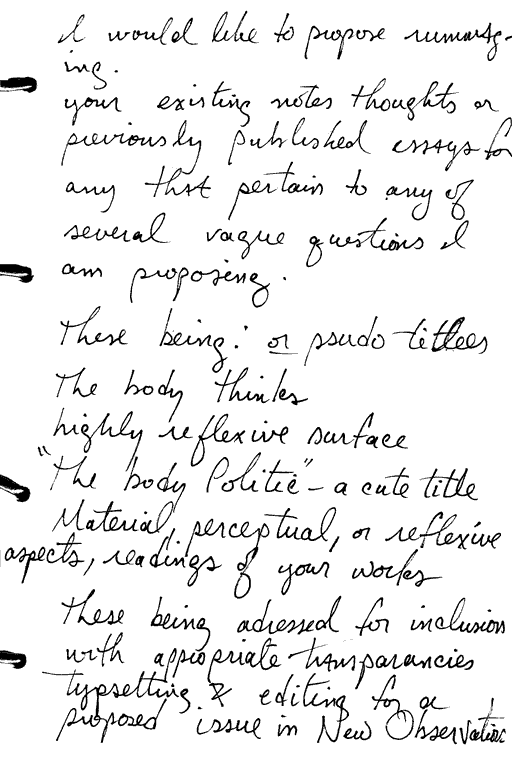 I would like to propose rumaég-
ing.
your existing notes thoughts or
previously published essays for
any that pertain to any of
several vague questions I
am proposing.
These being: or psudo tittlees
The body thinks
highly reflexive surface
"The body Politic" - a cute title
Material, perceptual, or reflexive
aspects, readings of your works
these being adressed for inclusion
with appiopriate transparancies
typsetting & editing for a
proposed issue in New Observations